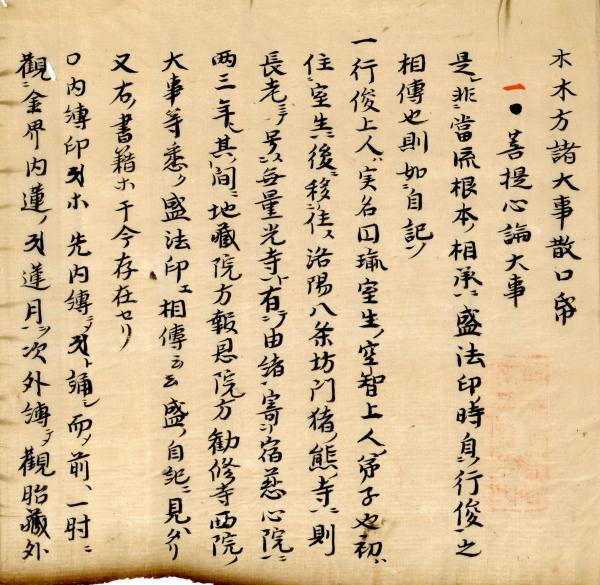 木木方諸大事散口帋
一●菩提心論大事
是ハ非當流根本ノ相承ニハ盛法印ノ時自リ行俊之
相傳也則如ニ自記ノ
一行俊上人ハ実名囙瑜室生ノ空智上人ノ弟子也初ハ
住ニ室生ニ後ニハ移住ス洛陽八条坊門猪ノ熊ノ寺ニ則
長老ニテ号ス無量光寺ト有テ由緒寄リ宿慈心院ニ
两三年ヒ其ノ間ニ地藏院方報恩院方勧修寺西院ノ
大事等悉ク盛法印エ相傳云云盛ノ自記ニ見ヘタリ
又右ノ書籍ホ于今存在セリ
口内縛印 ホ 先内縛シテ ト誦シ而ノ前ヘ一肘ニ
觀ニ金界内蓮ノ 蓮月ハツ次外縛シテ觀胎藏外